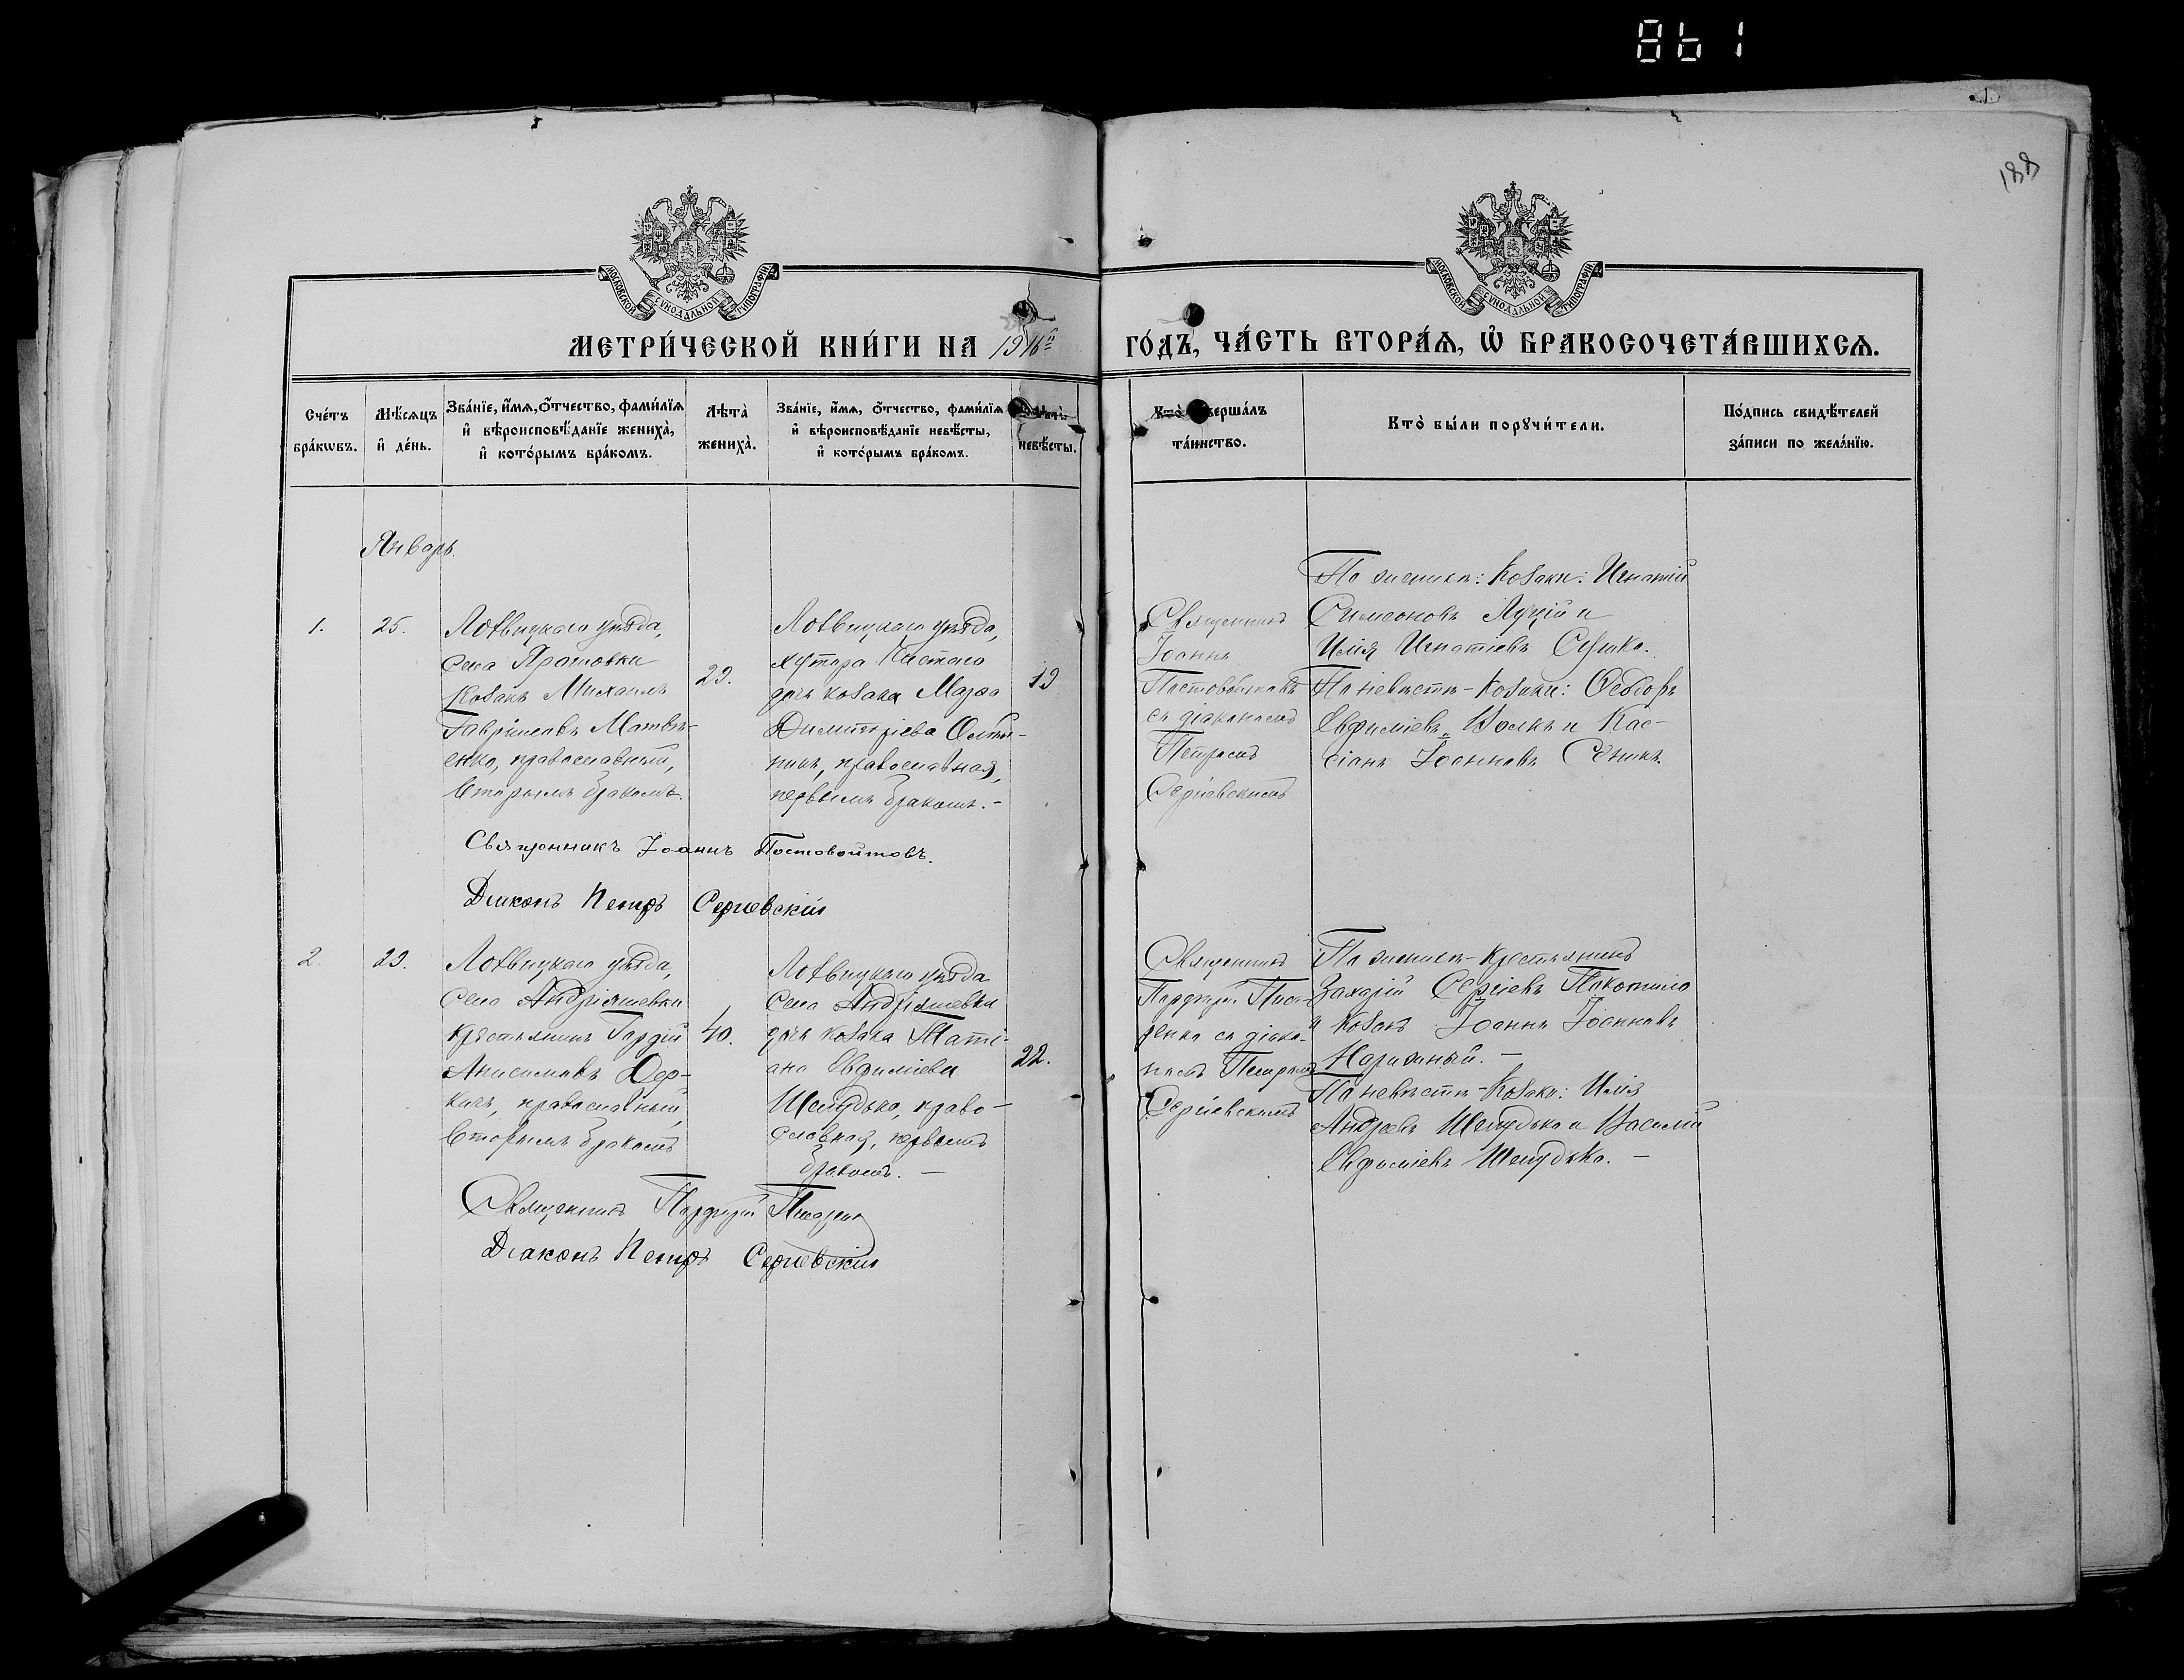 861
188
МОСКОВСКОЙ СУНОДАЛЬНОЙ ТИПОГРАФІИ
МОСКОВСКОЙ СУНОДАЛЬНОЙ ТИПОГРАФІИ
МЕТРИ́ЧЕСКОЙ КНИ́ГИ НА 1916й
ГО́ДЪ, ЧА́СТЬ ВТОРА́Ѧ, Ѽ БРАКОСОЧЕТА́ВШИХСѦ.
Сче́тъ
бра́кѡвъ.
Мѣ́сѧцъ
и҆ де́нь.
Зва́нїе, и҆́мѧ, ѻ҆́тчество, фами́лїѧ
и҆ вѣроисповѣ́данїе жениха̀,
и҆ кото́рымъ бра́комъ.
Лѣта̀
жениха̀.
Зва́нїе, и҆́мѧ, ѻ҆́тчество, фами́лїѧ
и҆ вѣроисповѣ́данїе невѣ́сты,
и҆ кото́рымъ бра́комъ.
Лѣта̀
невѣ́сты.
Кто̀ вершáлъ
та́инство.
Кто̀ бы́ли порꙋчи́тели.
По́дпись свидѣ́телей
за́писи по жела́нїю.
Январь.
1.
25.
Лохвицкаго уѣзда,
Села Яро
Козакъ Михаилъ
Гавріиловъ Матвѣ-
енко, православный,
вторымъ бракомъ.
29.
Лохвицкаго уѣзда,
хутора Чистаго
дочь козака Марѳа
Димитріева
православная,
первымъ бракомъ.-
19
Священникъ
Іоаннъ
Постовойтовъ
съ діакономъ
Петромъ
Сергіевскимъ
По женихѣ: Козаки: Игнатій
Симеоновъ Луцій и
Илія Игнатіевъ Сушко.
По невѣстѣ-Козаки: Ѳеодоръ
Евфиміевъ Волкъ и Кас-
сіанъ Іоанновъ Сѣникъ.
Священникъ Іоаннъ Постовойтовъ.
Діаконъ Петръ Сергіевскій
2.
29.
Лохвицкаго уѣзда,
Села Андріяшевки
крестьянинъ Гордій
Анисимовъ Дер-
качъ, православный,
вторымъ бракомъ
40.
Лохвицкаго уѣзда
Села Андріяшевки
дочь козака Тати-
ана Евфиміева
Шелудько, право-
славная, первымъ
бракомъ. —
22.
Священникъ
Порфирій Писа-
ренко съ діако-
номъ Петромъ
Сергіевскимъ
По женихѣ-Крестьянинъ
Захарій Сергіевъ Покотило
и Козакъ Іоаннъ Іоанновъ
Нарижный. —
По невѣстѣ-Козаки: Илія
Андреевъ Шелудько и Василій
Евфиміевъ Шелудько. —
Священникъ Порфирій Писаренко
Діаконъ Петръ Сергіевскій